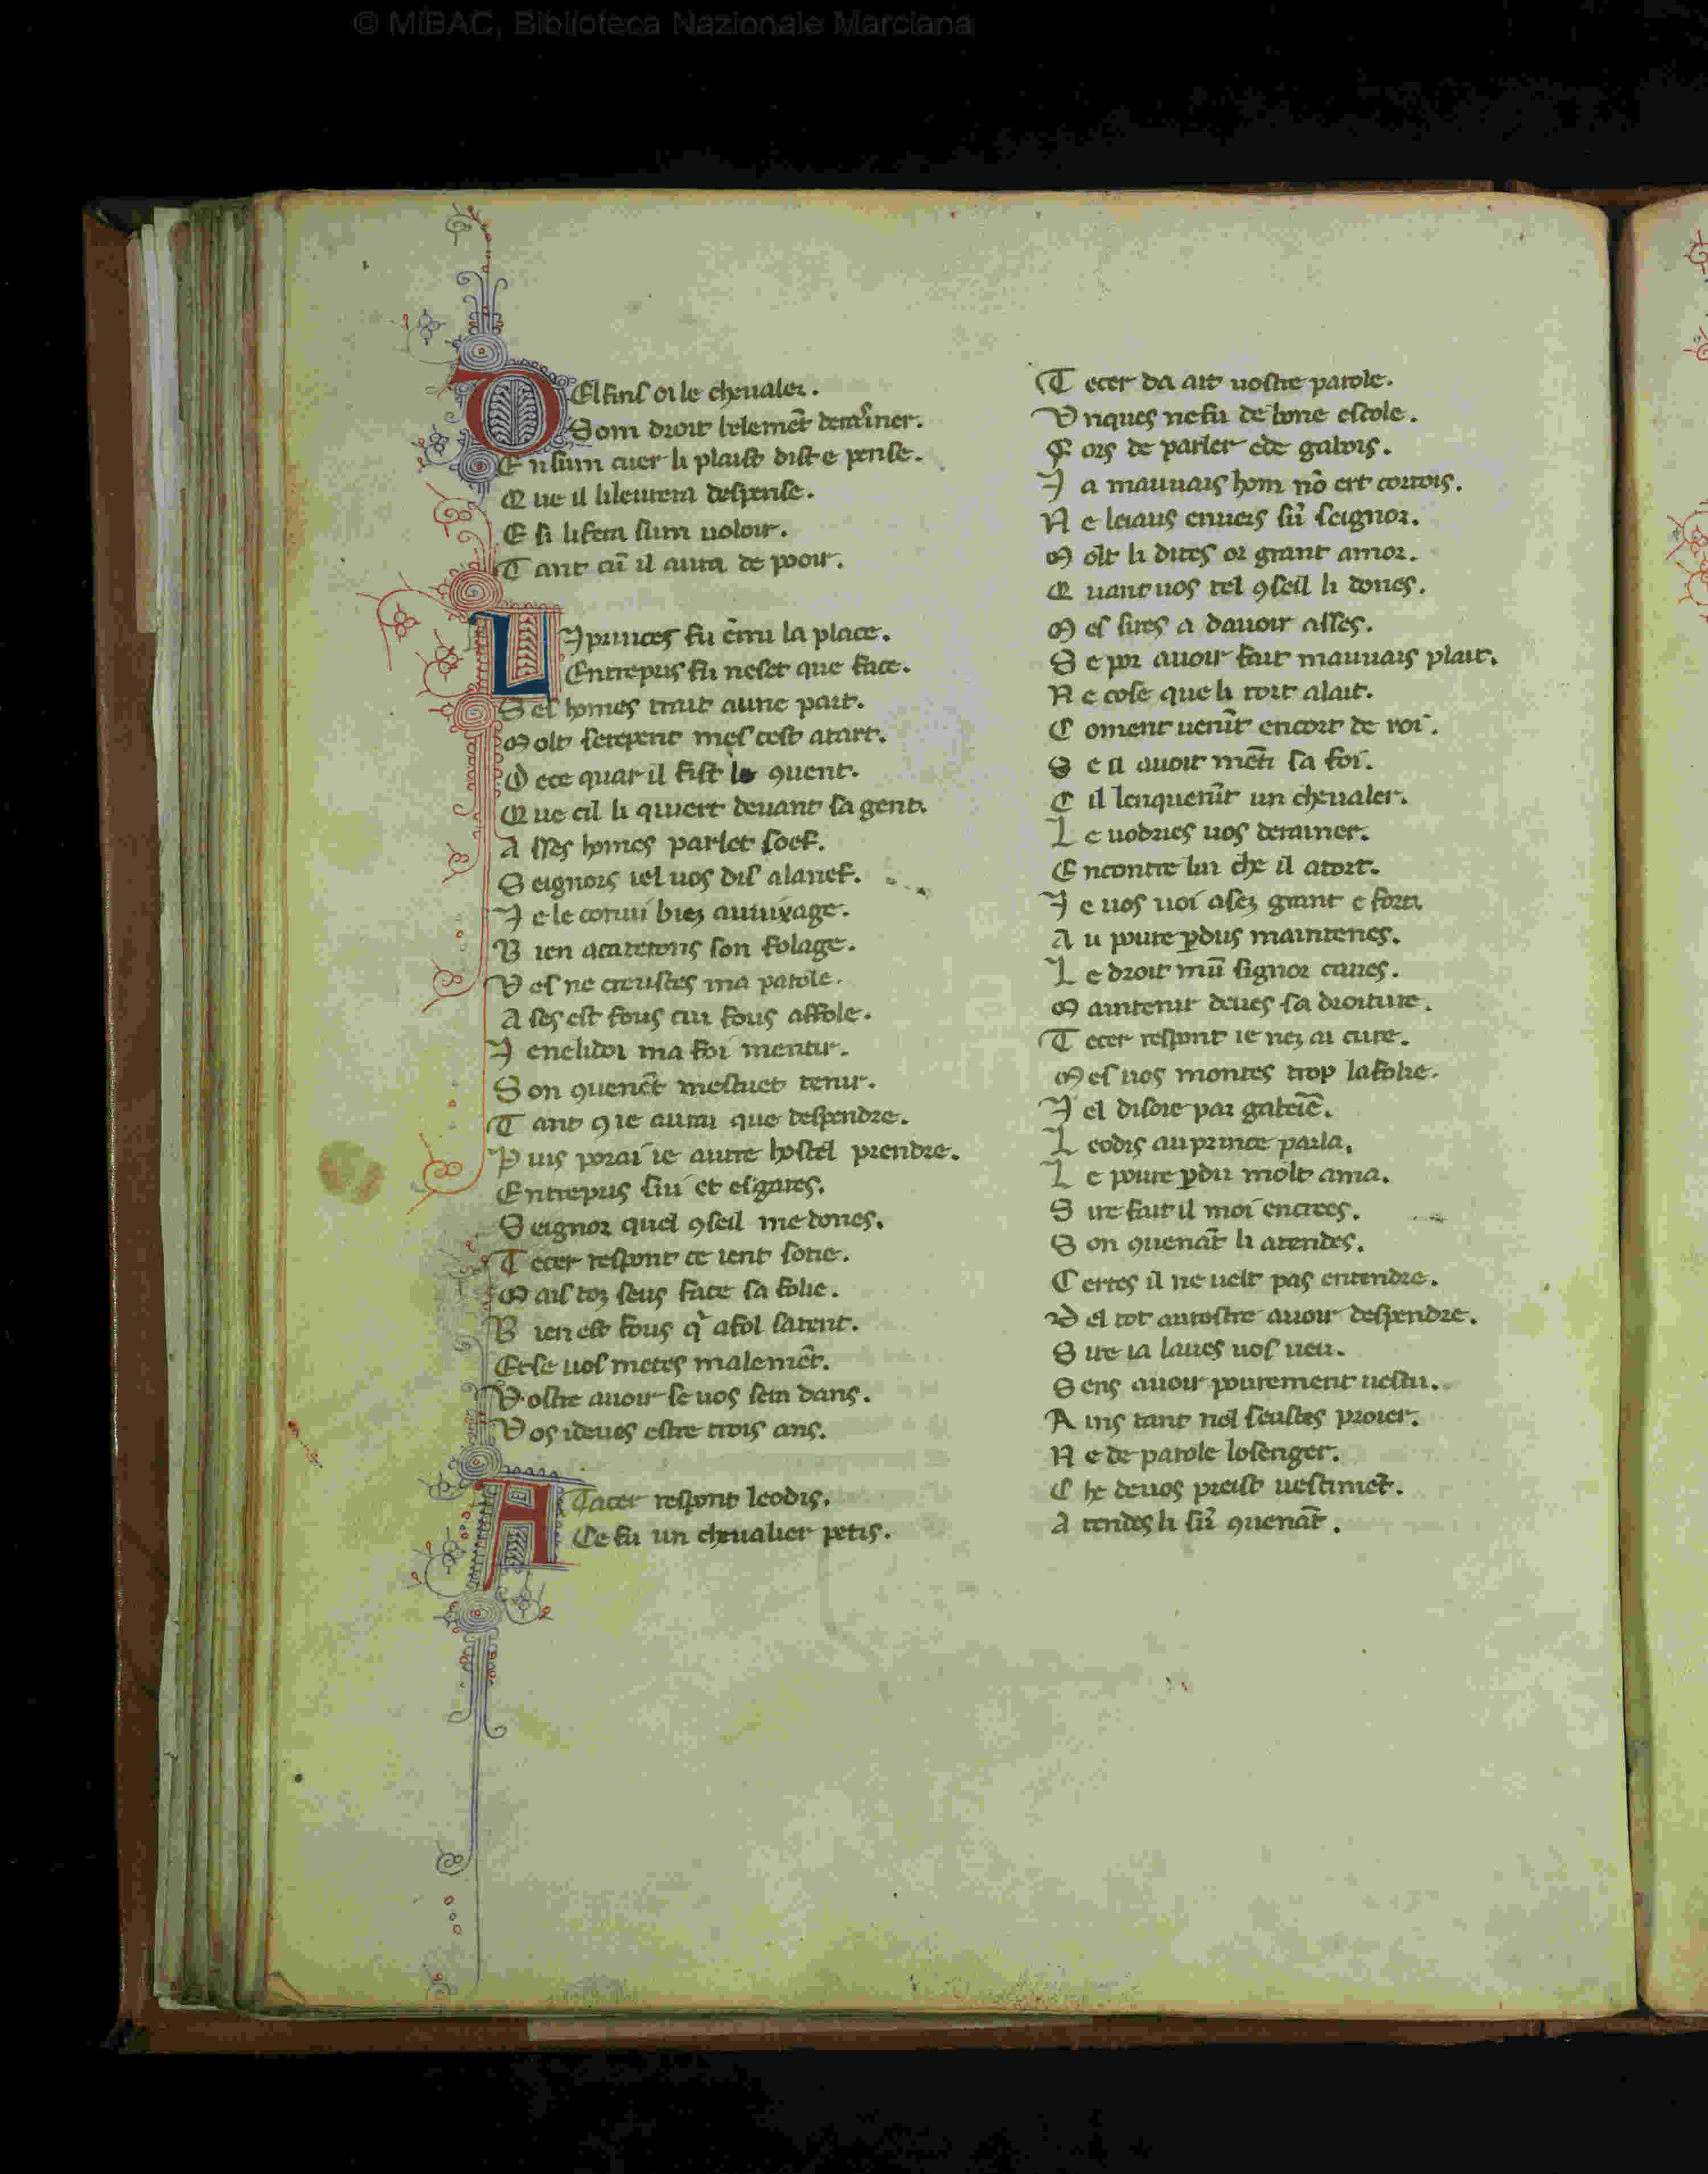 © MiBAC, Biblioteca Nazionale Marciana
DElfinſ oi le cheualer.
Som droit belemēt
E n ſium cuer li plaiſt diſt e penſe.
Q ue il liliurera deſpenſe.
E ſi li fera ſum uoloir.
T ant cū il aura de pooir.
LJ princes fu ēmi la place.
Entrepris fu neſet que face.
S eſ homes trait aune part.
M olt ſerepent meſ ceſt atart.
D ece quar il fiſt le ꝯuent.
Q ue cil li quiert deuant ſa gent.
A ſſes homes parlet ſoef.
S eignors iel uos diſ alanef.
J e le conui biez
B ien acateronſ ſon folage.
V oſ ne creuſtes ma parole.
A ſes eſt fous cui fous affole.
J enelidoi ma foi mentir.
S on ꝯuenēt meſtuet tenir.
T ant ꝯ ie aurai que deſpendre.
P uis porai ie autre hoſtel prendre.
Entrepris ſui et eſgares.
S eignor quel ꝯſeil me dones.
T ecer reſpont ce ient ſotie.
M aiſ toz ſeus face ſa folie.
B ien eſt fous q' afol ſatent.
Et ſe uoſ metes malemēt.
V oſtre auoir ſe uos ſera dans.
V os ideues eſtre trois ans.
A Tacer reſpont leodis.
Ce fu un cheualier petis.
T ecer da art uoſtre parole.
V nques ne fu de bone eſcole.
F ors de parler ede gabois.
J a mauuais hom nō ert cortois.
N e leiaus enuers ſū ſeignor.
M olt li dites or grant amor.
Q uant uos tel ꝯſeil li dones.
M eſ ſires a dauoir aſſes.
S e por auoir fait mauuais plait.
N e coſe que li tort alait.
C oment uenūt encort de roi.
S e il auoit mēti ſa foi.
C il lenquerūt un cheualer.
L e uodries uos derainer.
E ncontre lui che il atort.
J e uos uoi aſez grant e fort.
A u poure ꝑdus maintenes.
L e droit mū ſignor caues.
M aintenir deues ſa droiture.
T ecer reſpont ie nez ai cure.
M eſ uos montes trop lafolie.
J el diſoie par gaberiē.
L eodis au prince parla.
L e poure ꝑdu molt ama.
S ire fait il moi entrees.
S on ꝯuenāt li atendes.
C ertes il ne uelt pas entendre.
D el tot auroſtre auoir deſpendre.
S ire ia laues uoſ ueu.
S ens auoir pourement ueſtu.
A ins tant nel ſeuſtes proier.
N e de parole loſenger.
C he deuos preiſt ueſtimēt.
A tendes li ſū ꝯuenāt.